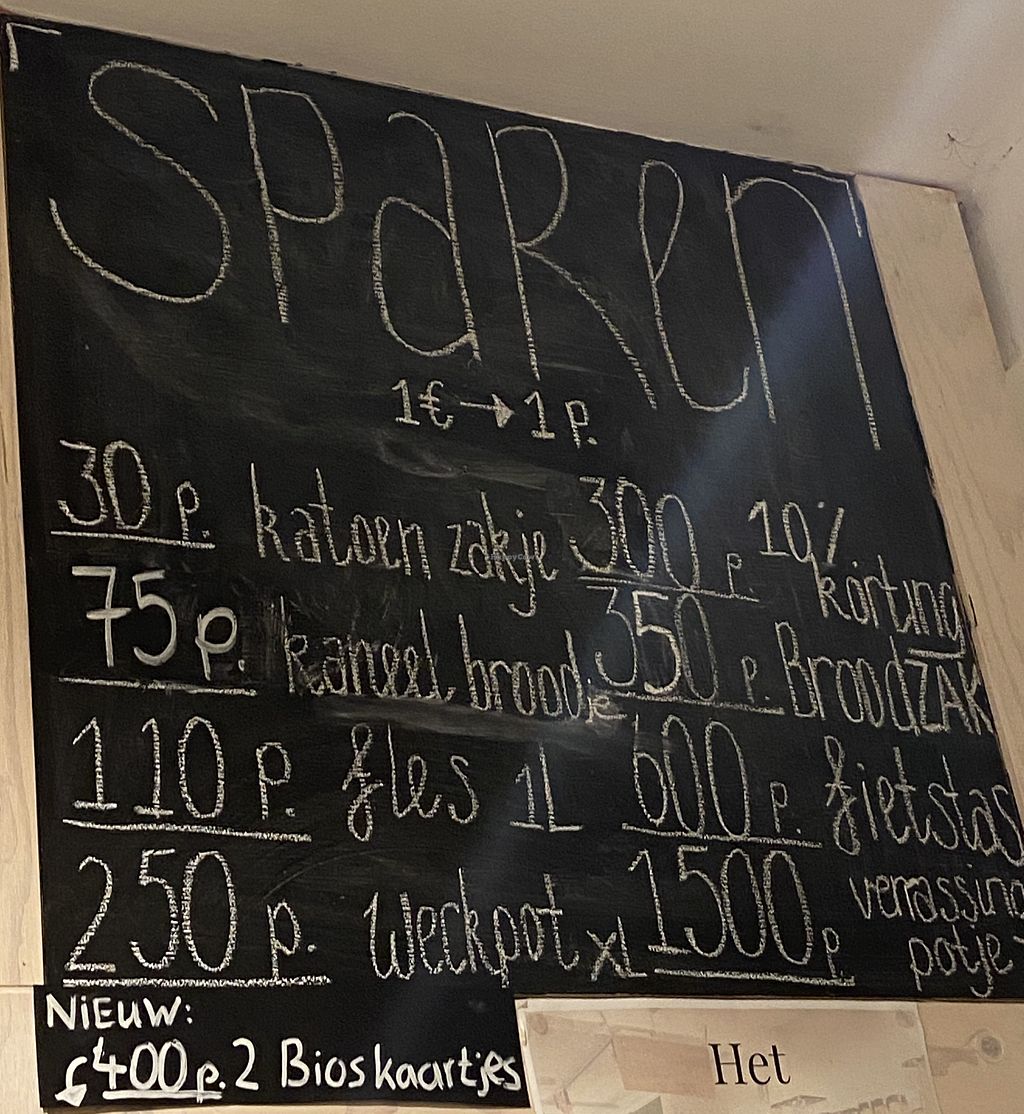 SPaRen
1€ → 1 p.
30 p. katoen zakje
75 p. kaneel broodje
110 p. fles 1L
250 p. Weckpot XL
300 p. 10% korting
350 p. BroodZAK
600 p. fietstas
1500 p verrassing
potje
NiEUW:
400 p. 2 Bioskaartjes
Het